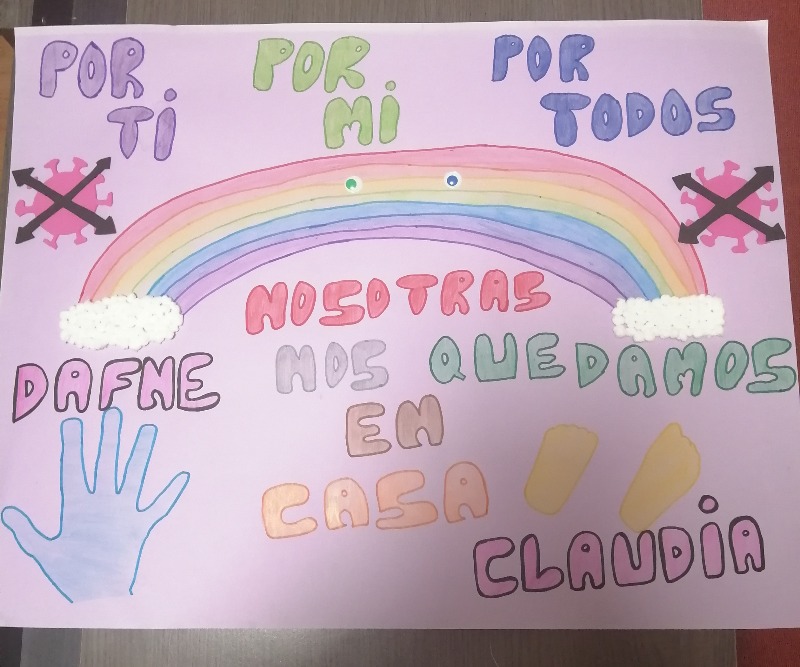 POR TI
POR MI
POR TODOS
NOSOTRAS
NOS QUEDAMOS
EN
CASA
DAFNE
CLAUDIA